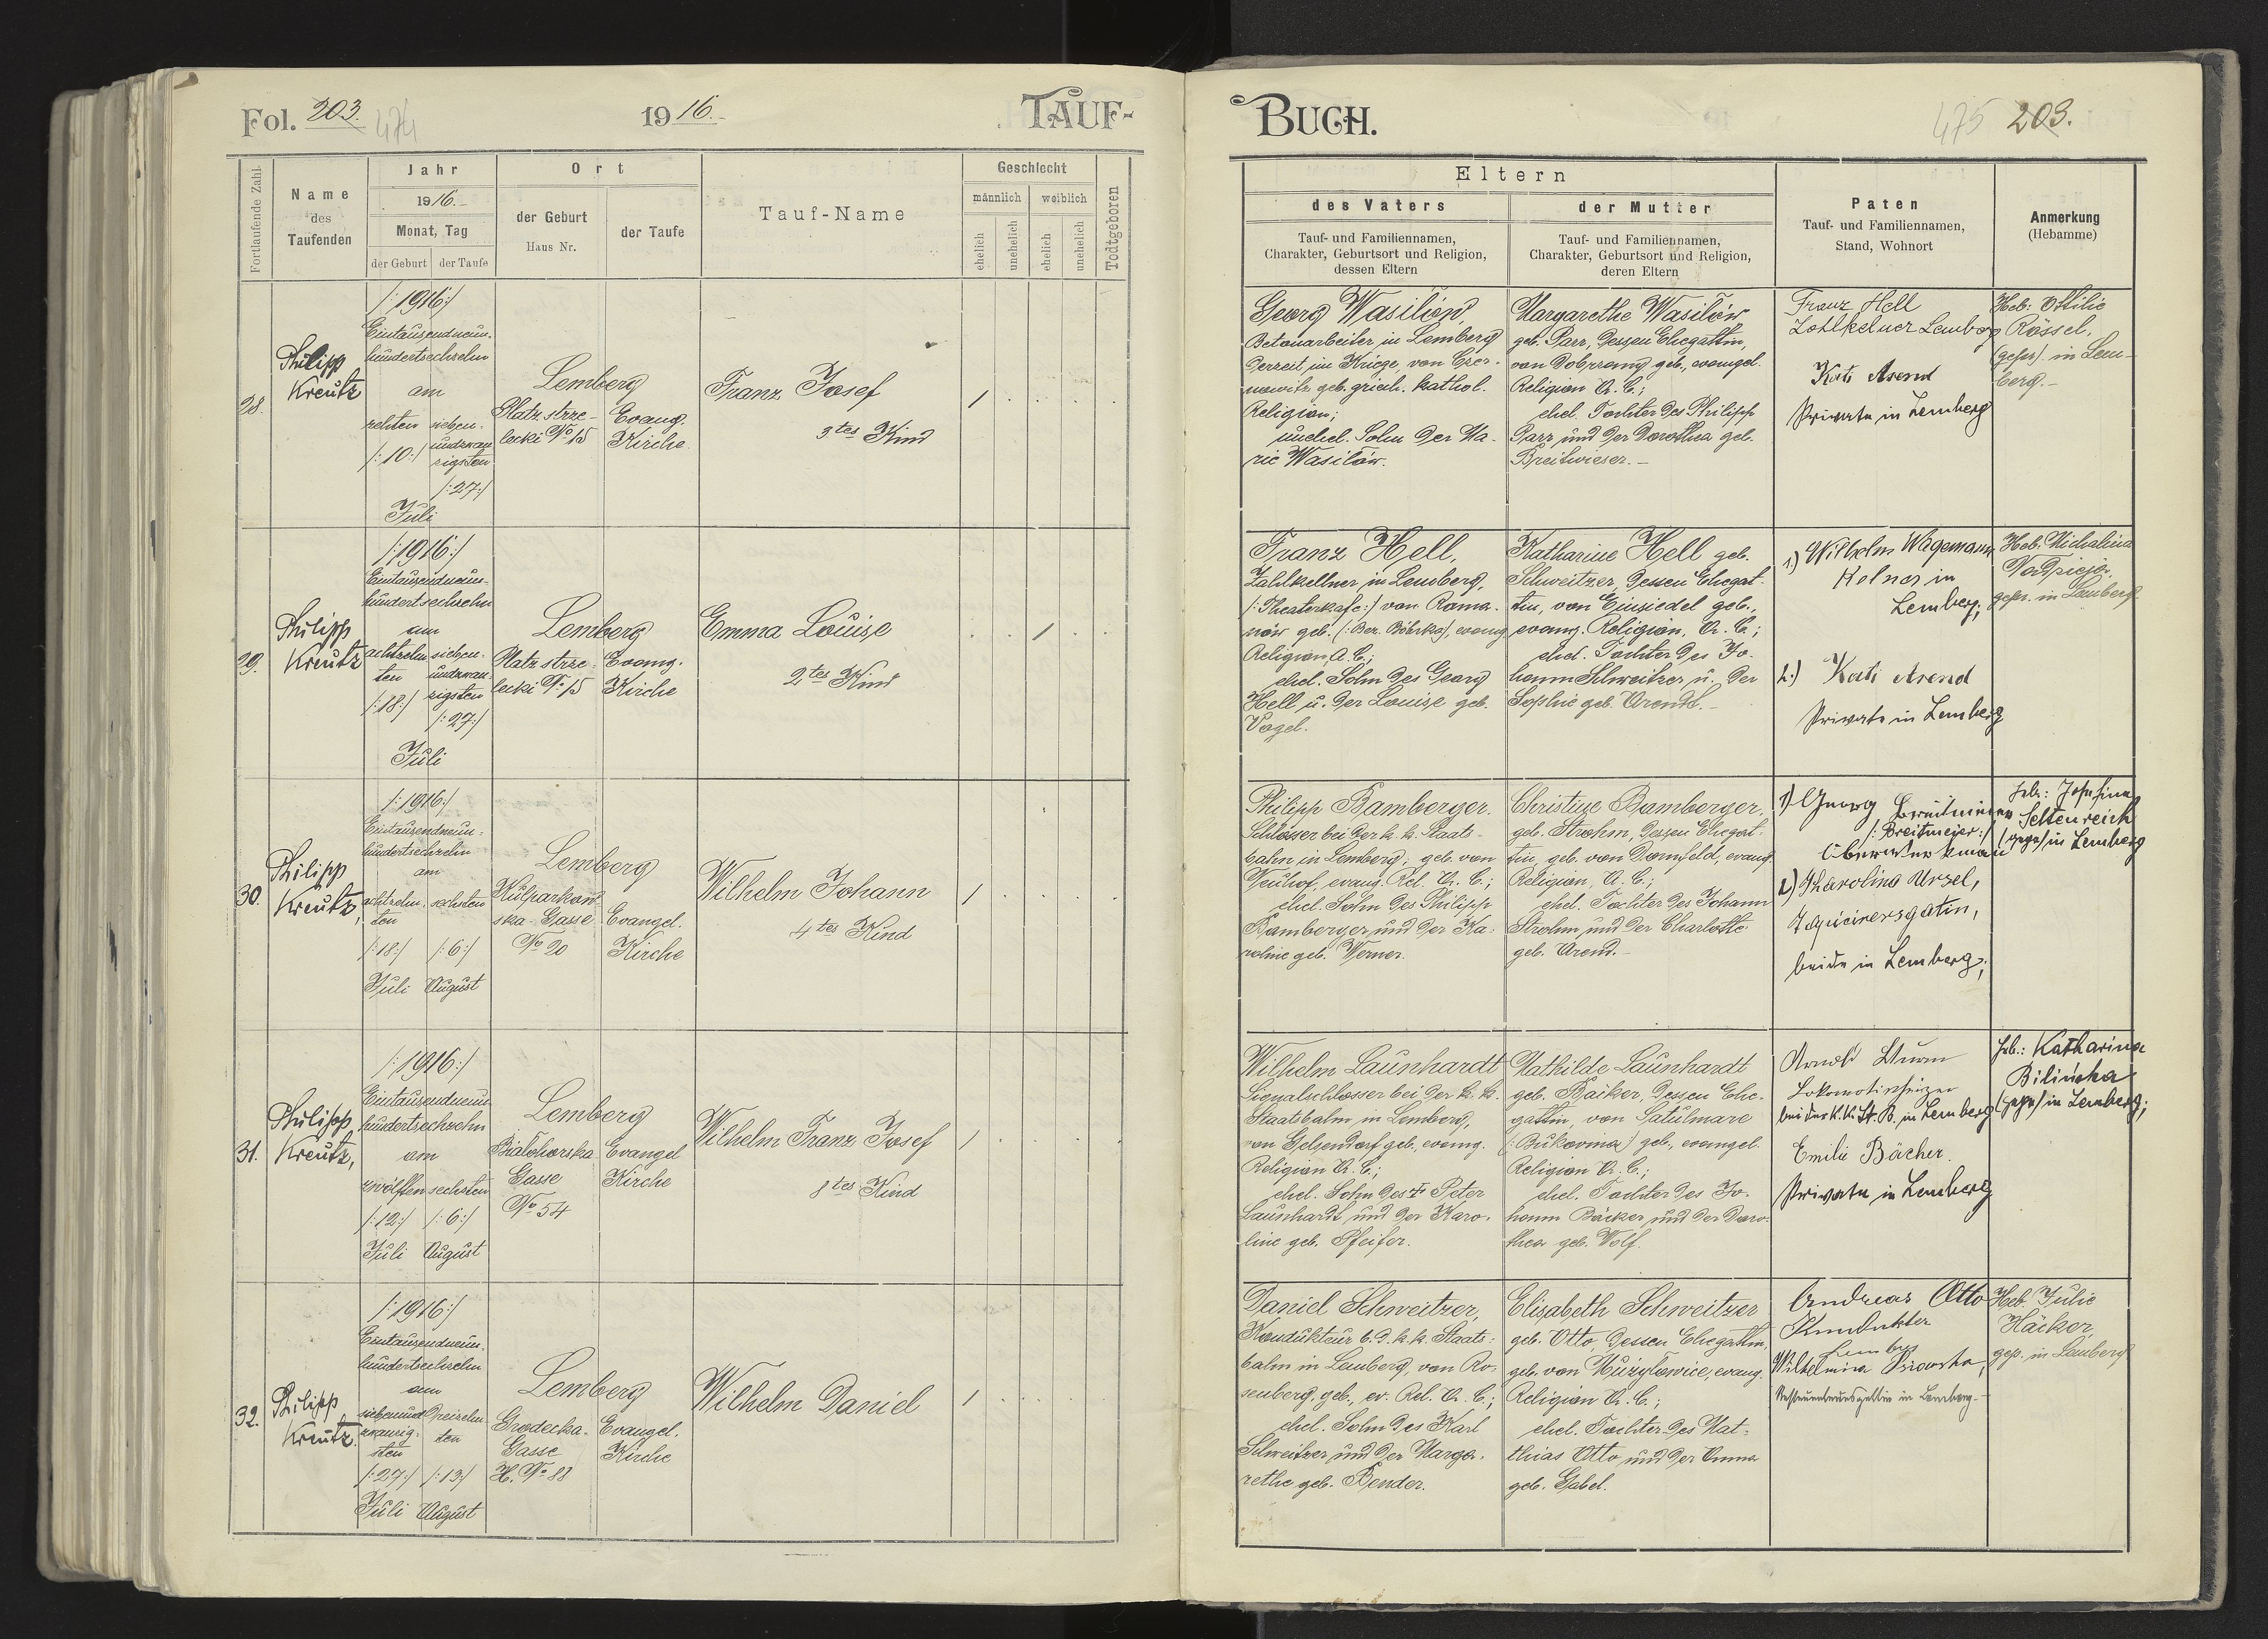 Fol. 203. 474
1916.
TAUF-
Fortlaufende Zahl
Name
des
Taufenden
Jahr
1916.
Monat, Tag
der Geburt
der Taufe
Ort
der Geburt
Haus Nr.
der Taufe
Tauf-Name
Geschlecht
männlich
weiblich
ehelich
unehelich
ehelich
unehelich
Todtgeboren
28.
Philipp
Kreutz
/:1916:/
Eintausendneun-
hundertsechzehn
am
zehten
/:10:/
sieben-
undzwan
zigsten
/:27:/
Juli
Lemberg
Platz strze-
lecki No 15
Evang.
Kirche
Franz Josef
3tes Kind
/
29.
Philipp
Kreutz
/:1916:/
Eintausendneun-
hundertsechzehn
am
achtzehn
ten
/:18:/
sieben-
undzwan
zigsten
/:27:/
Juli
Lemberg
Platz strze-
lecki No 15
Evang.
Kirche
Emma Louise
2tes Kind
/
30.
Philipp
Kreutz,
/:1916:/
Eintausendneun-
hundertsechzehn
am
achtzehn
ten
/:18:/
Juli
sechsten
/:6:/
August
Lemberg
Kulparkow
ska-Gasse
No 20
Evangel.
Kirche
Wilhelm Johann
4tes Kind
/
31.
Philipp
Kreutz,
/:1916:/
Eintausendneun
hundertsechzehn
am
zwölften
/:12:/
Juli
sechsten
/:6:/
August
Lemberg
Białohorska
Gasse
No 54
Evangel
Kirche
Wilhelm Franz Josef
8tes Kind
/
32.
Philipp
Kreutz.
/:1916:/
Eintausendneun-
hundertsechzehn
am
siebenund
zwanzig-
sten
/:27:/
Juli
Dreizehn
ten
/:13:/
August
Lemberg
Grodecka-
Gasse
H. No 88
Evangel.
Kirche
Wilhelm Daniel
/
BUCH.
475 203.
Eltern
des Vaters
Tauf- und Familiennamen,
Charakter, Geburtsort und Religion,
dessen Eltern
der Mutter
Tauf- und Familiennamen,
Charakter, Geburtsort und Religion,
deren Eltern
Paten
Tauf- und Familiennamen,
Stand, Wohnort
Anmerkung
(Hebamme)
Georg Wasilów,
Betonarbeiter in Lemberg
derzeit im Kriege, von Czer-
nowitz geb. griech. kathol.
Religion;
unehel. Sohn der Ma-
rie Wasilów.
Margarethe Wasilów
geb. Parr, dessen Ehegattin,
von Dobrzang geb., evangel.
Religion A. C.;
ehel. Tochter des Philipp
Parr und der Dorothea geb.
Breitwieser.-
Franz Hell
Zohlkelner Lemberg
Kati Arend
Private in Lemberg
Heb: Ottilie
Rössel,
(gepr). in Lem-
berg.-
Franz Hell,
Zahlkellner, in Lemberg,
/:Theaterkafe:/ von Roma-
nów geb. (:Bez. Bóbrka), evang
Religion, A. C.;
ehel. Sohn des Georg
Hell u. der Louise geb.
Vogel.
Katharine Hell geb.
Schweitzer, dessen Ehegat-
tin, von Einsiedel geb.,
evang. Religion, A. C.;
ehel. Tochter des Jo-
hann Schweitzer u. der
Sophie geb. Arendt.-
1.) Wilhelm Wagemann
Kelner in
Lemberg;
2.) Kati Arend
Private in Lemberg
Heb: Michalina
gepr. in Lemberg.
Philipp Bamberger.
Schlosser bei der k. k. Staats-
bahn in Lemberg; geb. von
Neuhof, evang. Rel. A. C.;
ehel. Sohn des Philipp
Bamberger und der Ka-
roline geb. Werner.
Christine Bamberger,
geb. Strohm, dessen Ehegat-
tin, geb. von Dornfeld, evang.
Religion, A. C.;
ehel. Tochter des Johann
Strohm und der Charlotte
geb. Arend.-
1) Georg
/:Breitmeier:/
2) Karolina Ursel,
beide in Lemberg;
Heb.: Josefina
Seltenreich
(gepr) in Lemberg
Wilhelm Launhardt
Signalschlosser bei der k. k.
Staatsbahn in Lemberg,
von Gelsendorf geb., evang.
Religion A. C.;
ehel. Sohn des + Peter
Launhardt und der Karo-
line geb. Pfeifer.
Mathilde Launhardt
geb. Bäcker, dessen Ehe-
gattin, von Satulmare
(:Bukovina) geb., evangel.
Religion A. C.;
ehel. Tochter des Jo-
hann Bäcker und der Doro-
thea geb. Wolf.
Arnold Sturm
Lokomotivheizer
bei der k. k. St. B. in Lemberg
Emilie Bächer.
Private in Lemberg
Heb.: Katharina
Bilińska
(gepr) in Lemberg;
Daniel Schweitzer,
Kondukteur b. d. k. k. Staats-
bahn in Lemberg, von Ro-
senberg, geb., ev. Rel. A. C.;
ehel. Sohn des Karl
Schweitzer und der Marga-
rethe geb. Bender.
Elisabeth Schweitzer
geb. Otto, dessen Ehegattin,
geb. von Mużyłowice, evang.
Religion A. C.;
ehel. Tochter des Mat-
thias Otto und der Emma
geb. Gabel.
Andreas Otto
Kondukter
Lemberg
Wilhelmina
in Lemberg.-
Heb. Julie
Häcker,
gep. in Lemberg